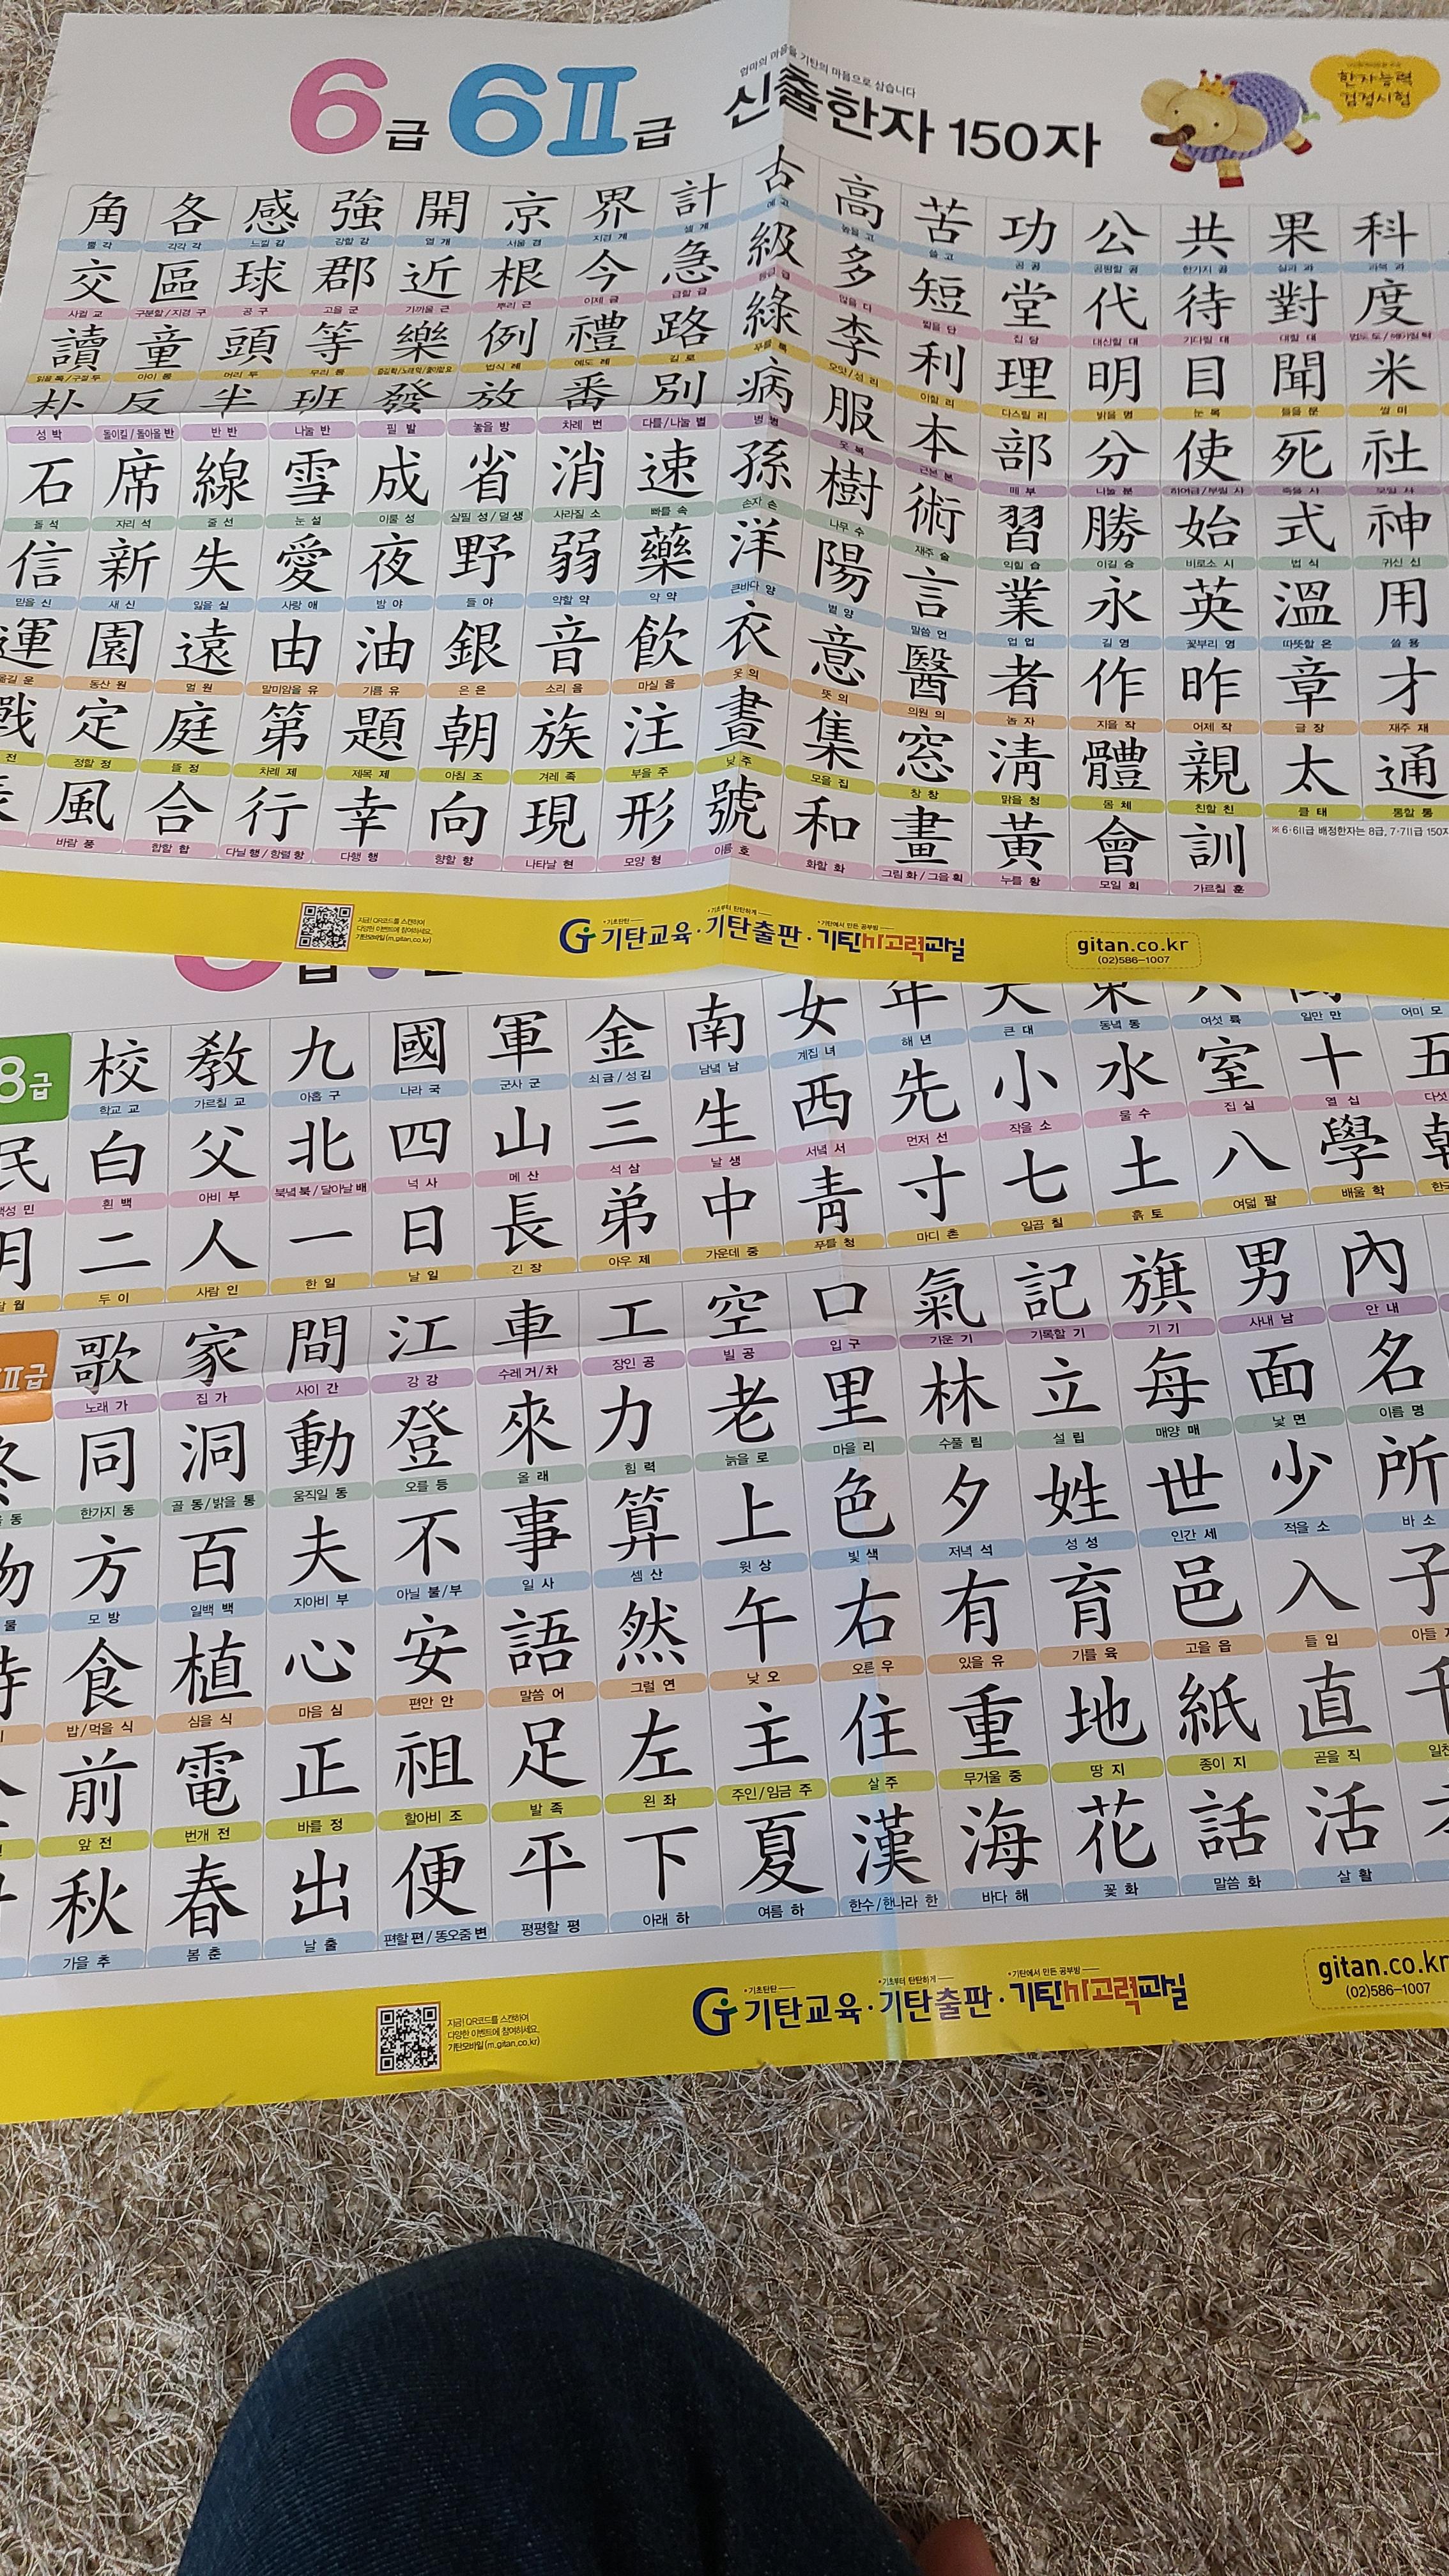 엄마의 마음을 기탄의 마음으로 삼습니다
6급 6Ⅱ급 신출한자 150자
한자능력
검정시험
角 各 感 強 開 京 界 計 古 高 苦 功 公 共 果 科
뿔 각 각각 각 느낄 감 강할 강 열 개 서울 경 지경 계 셀 계 예 고 높을 고 쓸 고 공 공 공평할 공 한가지 공 실과 과 과목 과
交 區 球 郡 近 根 今 急 級 多 短 堂 代 待 對 度
사귈 교 구분할/지경 구 공 구 고을 군 가까울 근 뿌리 근 이제 금 급할 급 등급 급 많을 다 짧을 단 집 당 대신할 대 기다릴 대 대할 대 법도 도/헤아릴 탁
讀 童 頭 等 樂 例 禮 路 綠 李 利 理 明 目 聞 米
읽을 독/구절 두 아이 동 머리 두 무리 등 법식 례 예도 례 길 로 푸를 록 오얏/성 리 이할 리 다스릴 리 밝을 명 눈 목 들을 문 쌀 미
朴 反 半 班 發 放 番 別 病 服 本 部 分 使 死 社
성 박 돌이킬/돌아올 반 반 반 나눌 반 필 발 놓을 방 차례 번 다를/나눌 별 병 병 옷 복 근본 본 떼 부 나눌 분 하여금/부릴 사 죽을 사 모일 사
石 席 線 雪 成 省 消 速 孫 樹 術 習 勝 始 式 神
돌 석 자리 석 줄 선 눈 설 이룰 성 살필 성/덜 생 사라질 소 빠를 속 손자 손 나무 수 재주 술 익힐 습 이길 승 비로소 시 법 식 귀신 신
信 新 失 愛 夜 野 弱 藥 洋 陽 言 業 永 英 溫 用
믿을 신 새 신 잃을 실 사랑 애 밤 야 들 야 약할 약 약 약 큰바다 양 볕 양 말씀 언 업 업 길 영 꽃부리 영 따뜻할 온 쓸 용
運 園 遠 由 油 銀 音 飮 衣 意 醫 者 作 昨 章 才
옮길 운 동산 원 멀 원 말미암을 유 기름 유 은 은 소리 음 마실 음 옷 의 뜻 의 의원 의 놈 자 지을 작 어제 작 글 장 재주 재
戰 定 庭 第 題 朝 族 注 晝 集 窓 淸 體 親 太 通
전 정할 정 뜰 정 차례 제 제목 제 아침 조 겨레 족 부을 주 낮 주 모을 집 창 창 맑을 청 몸 체 친할 친 클 태 통할 통
風 合 行 幸 向 現 形 號 和 畫 黃 會 訓
바람 풍 합할 합 다닐 행/항렬 항 다행 행 향할 향 나타날 현 모양 형 이름 호 화할 화 그림 화/그을 획 누를 황 모일 회 가르칠 훈
※ 6·6Ⅱ급 배정한자는 8급, 7·7Ⅱ급 150자
지금! QR코드를 스캔하여
다양한 이벤트에 참여하세요.
기탄모바일(m.gitan.co.kr)
기초탄탄 기초부터 탄탄하게 기탄에서 만든 공부방
기탄교육·기탄출판·기탄사고력교실
gitan.co.kr
(02)586-1007
8급
校 敎 九 國 軍 金 南 女 年 大 東 六 萬
학교 교 가르칠 교 아홉 구 나라 국 군사 군 쇠 금/성 김 남녘 남 계집 녀 해 년 큰 대 동녘 동 여섯 륙 일만 만 어미 모
民 白 父 北 四 山 三 生 西 先 小 水 室 十 五
백성 민 흰 백 아비 부 북녘 북/달아날 배 넉 사 메 산 석 삼 날 생 서녘 서 먼저 선 작을 소 물 수 집 실 열 십 다섯
月 二 人 一 日 長 弟 中 靑 寸 七 土 八 學 韓
달 월 두 이 사람 인 한 일 날 일 긴 장 아우 제 가운데 중 푸를 청 마디 촌 일곱 칠 흙 토 여덟 팔 배울 학 한국
Ⅱ급
歌 家 間 江 車 工 空 口 氣 記 旗 男 內
노래 가 집 가 사이 간 강 강 수레 거/차 장인 공 빌 공 입 구 기운 기 기록할 기 기 기 사내 남 안 내
冬 同 洞 動 登 來 力 老 里 林 立 每 面 名
동 한가지 동 골 동/밝을 통 움직일 동 오를 등 올 래 힘 력 늙을 로 마을 리 수풀 림 설 립 매양 매 낯 면 이름 명
物 方 百 夫 不 事 算 上 色 夕 姓 世 少 所
물 모 방 일백 백 지아비 부 아닐 불/부 일 사 셈 산 윗 상 빛 색 저녁 석 성 성 인간 세 적을 소 바 소
時 食 植 心 安 語 然 午 右 有 育 邑 入 子
밥/먹을 식 심을 식 마음 심 편안 안 말씀 어 그럴 연 낮 오 오른 우 있을 유 기를 육 고을 읍 들 입 아들
前 電 正 祖 足 左 主 住 重 地 紙 直 千
앞 전 번개 전 바를 정 할아비 조 발 족 왼 좌 주인/임금 주 살 주 무거울 중 땅 지 종이 지 곧을 직 일천
秋 春 出 便 平 下 夏 漢 海 花 話 活
가을 추 봄 춘 날 출 편할 편/똥오줌 변 평평할 평 아래 하 여름 하 한수/한나라 한 바다 해 꽃 화 말씀 화 살 활
지금! QR코드를 스캔하여
다양한 이벤트에 참여하세요.
기탄모바일(m.gitan.co.kr)
기초탄탄 기초부터 탄탄하게 기탄에서 만든 공부방
기탄교육·기탄출판·기탄사고력교실
gitan.co.kr
(02)586-1007